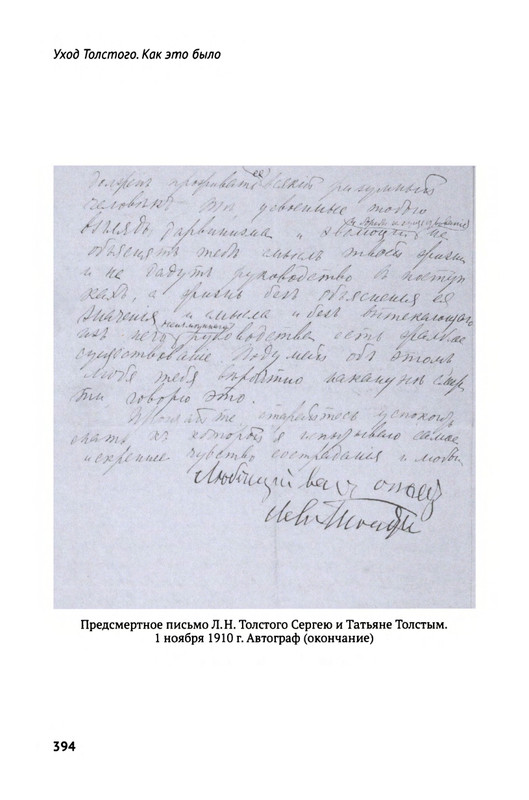 Уход Толстого. Как это было
долженъ профивать ее всякій разумный
человѣкъ. Тѣ, усвоенные тобою
взгляды дарвинизма и эволюціи не
объяснятъ тебѣ смысла твоей жизни
и не дадутъ руководства въ поступ
кахъ, а жизнь безъ объясненія ея
значенія и смысла и безъ вытекающаго
изъ него неизмѣннаго руководства есть жалкое
существованіе. Подумай объ этомъ
любя тебя вѣроятно наканунѣ смер
ти говорю это.
Прощайте, старайтесь успокоить
мать къ которой я испытываю самое
искреннее чувство состраданія и любви
Любящій васъ отецъ
Левъ Толстой
Предсмертное письмо Л.Н. Толстого Сергею и Татьяне Толстым.
1 ноября 1910 г. Автограф (окончание)
394